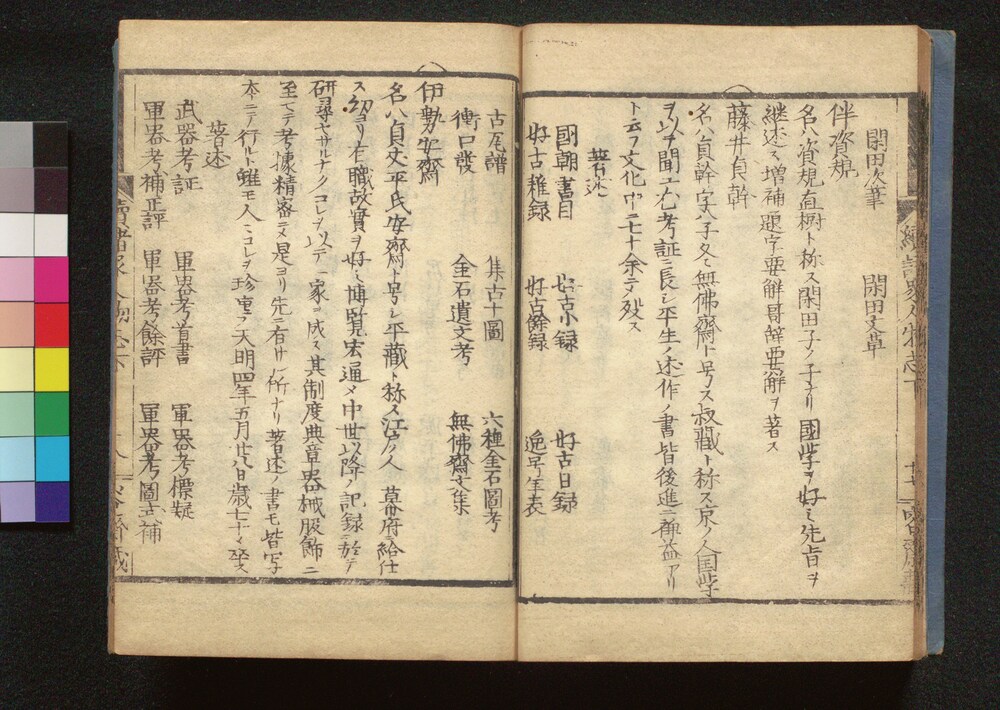 閑田次筆　閑田文草
伴資規
名ハ資規直樹ト称ス閑田子ノ子ナリ國学ヲ好ミ先旨ヲ
継述ス増補題字要解哥辞要解ヲ著ス
藤井貞幹
名ハ貞幹字ハ子冬無佛齋ト号ス叔藏ト称ス京ノ人国学
ヲ以テ聞エ尤考証ニ長シ平生ノ述作ノ書皆後進ニ裨益アリ
ト云フ文化中ニ七十余ニテ歿ス
著述
國朝書目　好古小録　好古日録
好古雜録　好古餘録　逸号年表
古瓦譜　集古十圖　六種金石圖考
衝口發　金石遺文考　無佛齋文集
伊勢安齋
名ハ貞丈平氏安齋ト号シ平藏ト称ス江戸ノ人幕府ニ給仕
ス幼ヨリ有職故實ヲ好ミ博覧宏通メ中世以降ノ記録ニ於テ
研尋セサルナクコレヲ以テ一家ヲ成ス其制度典章器械服飾ニ
至テ考據精密ニメ是ヨリ先ニ有サル所ナリ著述ノ書モ皆写
本ニテ行ルト雖モ人ミコレヲ珍重ス天明四年五月廿八日歳七十ニテ卒ス
著述
武器考証　軍器考首書　軍器考標疑
軍器考補正評　軍器考餘評　軍器考圖式補